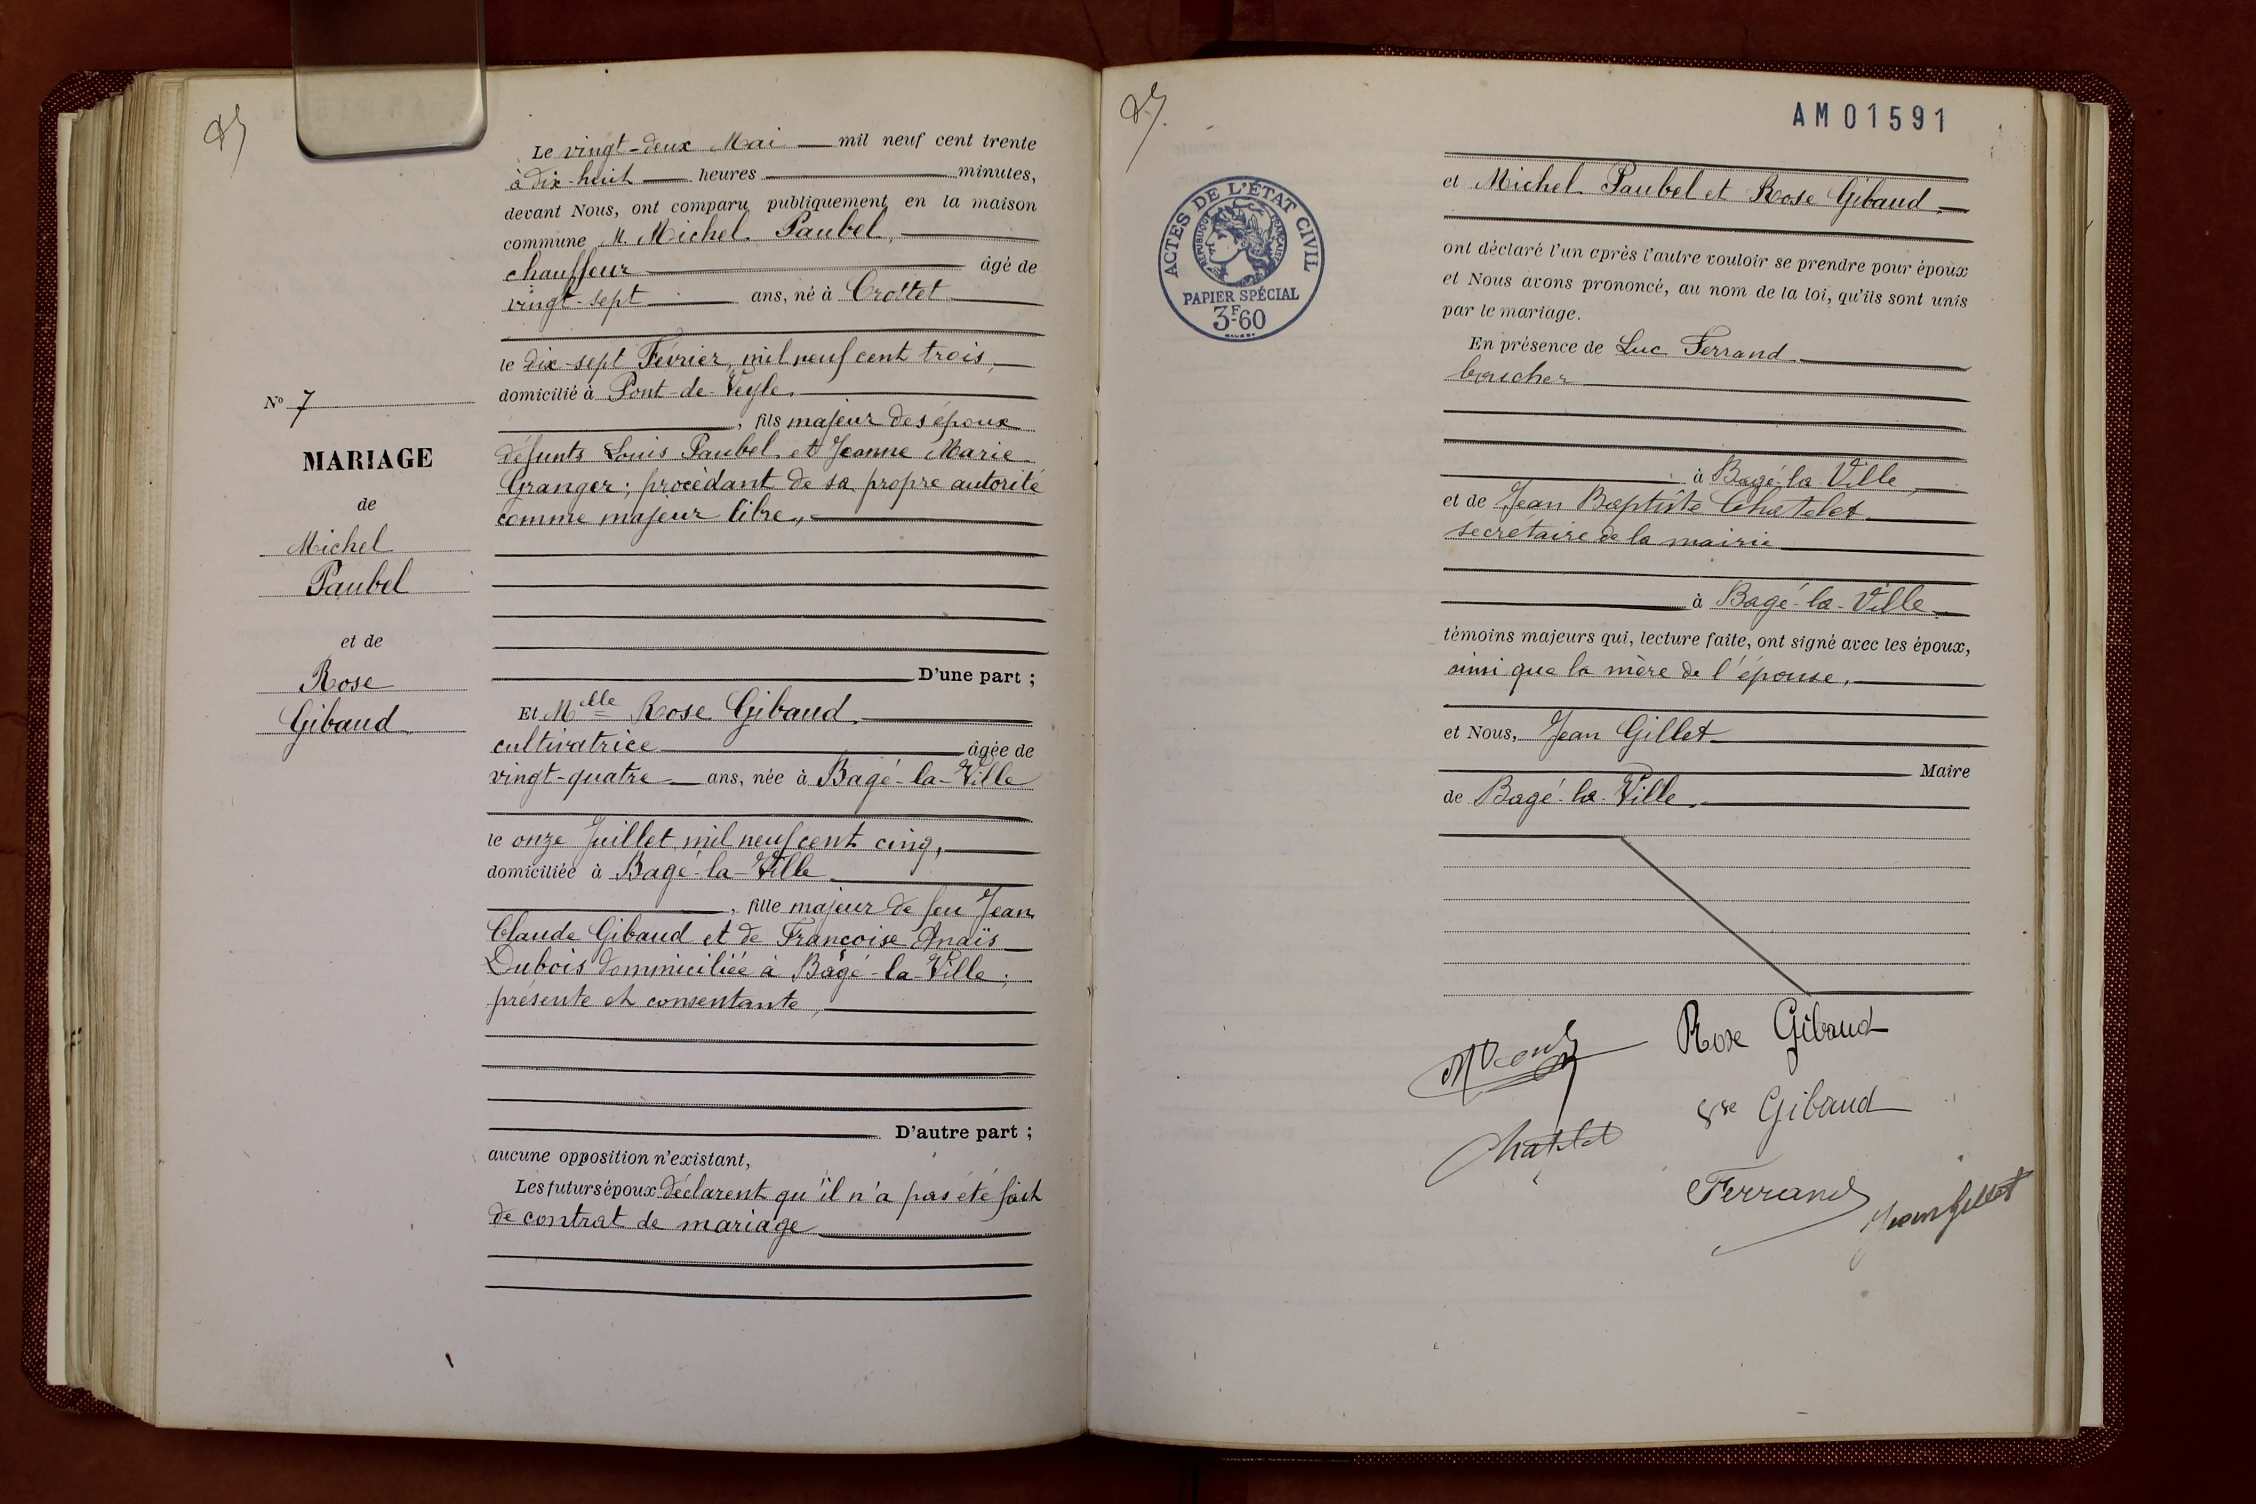 Le vingt-deux Mai mil neuf cent trente
à dix-huit heures minutes,
devant Nous, ont comparu publiquement en la maison
commune M. Michel Paubel,
chauffeur âgé de
vingt-sept ans, né à Crottet
le dix-sept Février mil neuf cent trois,
domicilié à Pont-de-Veyle.
, fils majeur des époux
défunts Louis Paubel et Jeanne Marie
Granger; procédant de sa propre autorité
comme majeur libre,
D'une part ;
Nº 7
MARIAGE
de
Michel
Paubel
et de
Rose
Gibaud
Et Melle Rose Gibaud.
cultivatrice âgée de
vingt-quatre ans, née à Bagé-la-Ville
le onze Juillet mil neuf cent cinq,
domiciliée à Bagé-la-Ville
, fille majeur de feu Jean
Claude Gibaud et de Françoise Anaïs
Dubois dominiciliée à Bagé-la-Ville;
présente et consentante,
D'autre part ;
aucune opposition n'existant,
Les futurs époux déclarent qu'il n'a pas été fait
de contrat de mariage
AM01591
ACTES DE L'ÉTAT CIVIL
RÉPUBLIQUE FRANÇAISE
PAPIER SPÉCIAL
3F60
et Michel Paubel et Rose Gibaud.
ont déclaré l'un après l'autre vouloir se prendre pour époux
et Nous avons prononcé, au nom de la loi, qu'ils sont unis
par le mariage.
En présence de Luc Ferrand
boucher
à Bagé-la-Ville,
et de Jean Baptiste Chatelet
secrétaire de la mairie
à Bagé-la-Ville
témoins majeurs qui, lecture faite, ont signé avec les époux,
ainsi que la mère de l'épouse.
et Nous, Jean Gillet
Maire
de Bagé-la-Ville.
Rose Gibaud
Gibaud
Chatelet
Ferrand
Jean Gillet